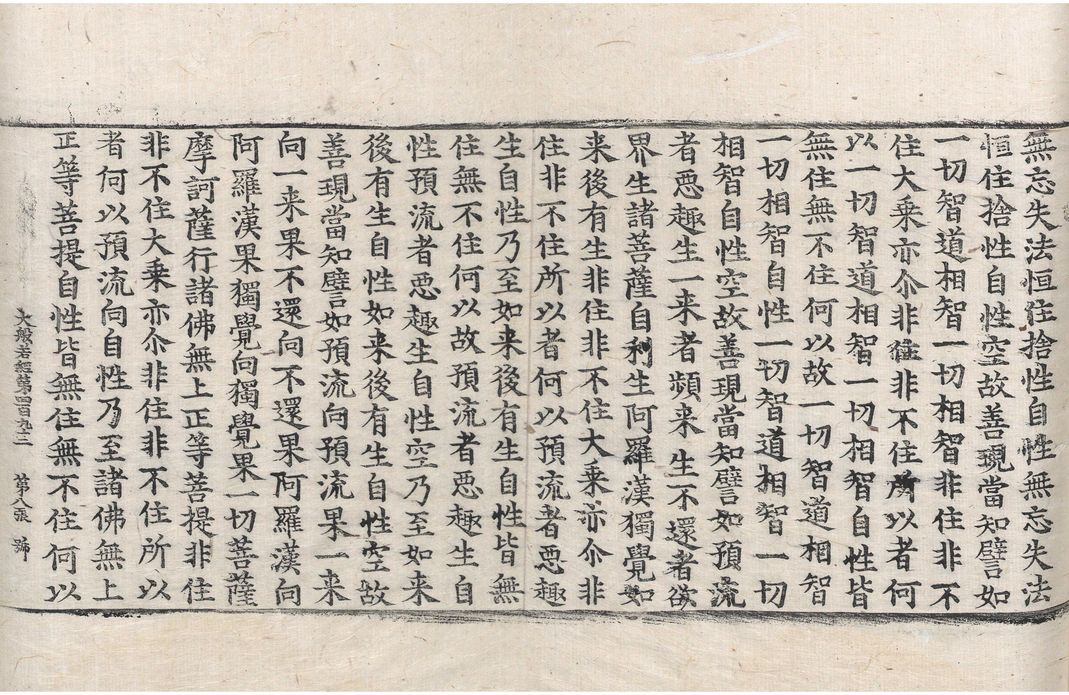 無忘失法恒住捨性自性無忘失法
恒住捨性自性空故善現當知譬如
一切智道相智一切相智非住非不
住大乗亦尒非住非不住所以者何
以一切智道相智一切相智自性皆
無住無不住何以故一切智道相智
一切相智自性一切智道相智一切
相智自性空故善現當知譬如預流
者悪趣生一来者頻来生不還者欲
界生諸菩薩自利生阿羅漢獨覺如
来後有生非住非不住大乗亦尒非
住非不住所以者何以預流者悪趣
生自性乃至如来後有生自性皆無
住無不住何以故預流者悪趣生自
性預流者悪趣生自性空乃至如来
後有生自性如来後有生自性空故
善現當知譬如預流向預流果一来
向一来果不還向不還果阿羅漢向
阿羅漢果獨覺向獨覺果一切菩薩
摩訶薩行諸佛無上正等菩提非住
非不住大乗亦尒非住非不住所以
者何以預流向自性乃至諸佛無上
正等菩提自性皆無住無不住何以
大般若經第四百九三 第八張 號